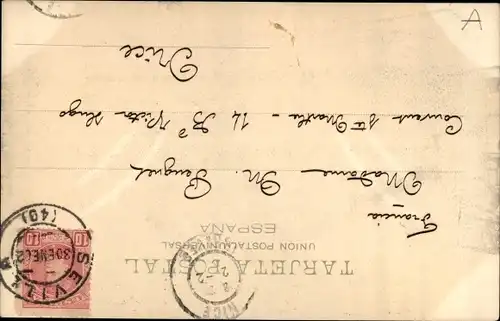 TARJETA POSTAL
UNION POSTAL UNIVERSAL
ESPAÑA
Francia
Madame M. Peugnet
Couvent Ste Marthe - 14 Bd Victor Hugo
Nice
SEVILLA
30 ENE 02
(40)
10 10
NICE
A